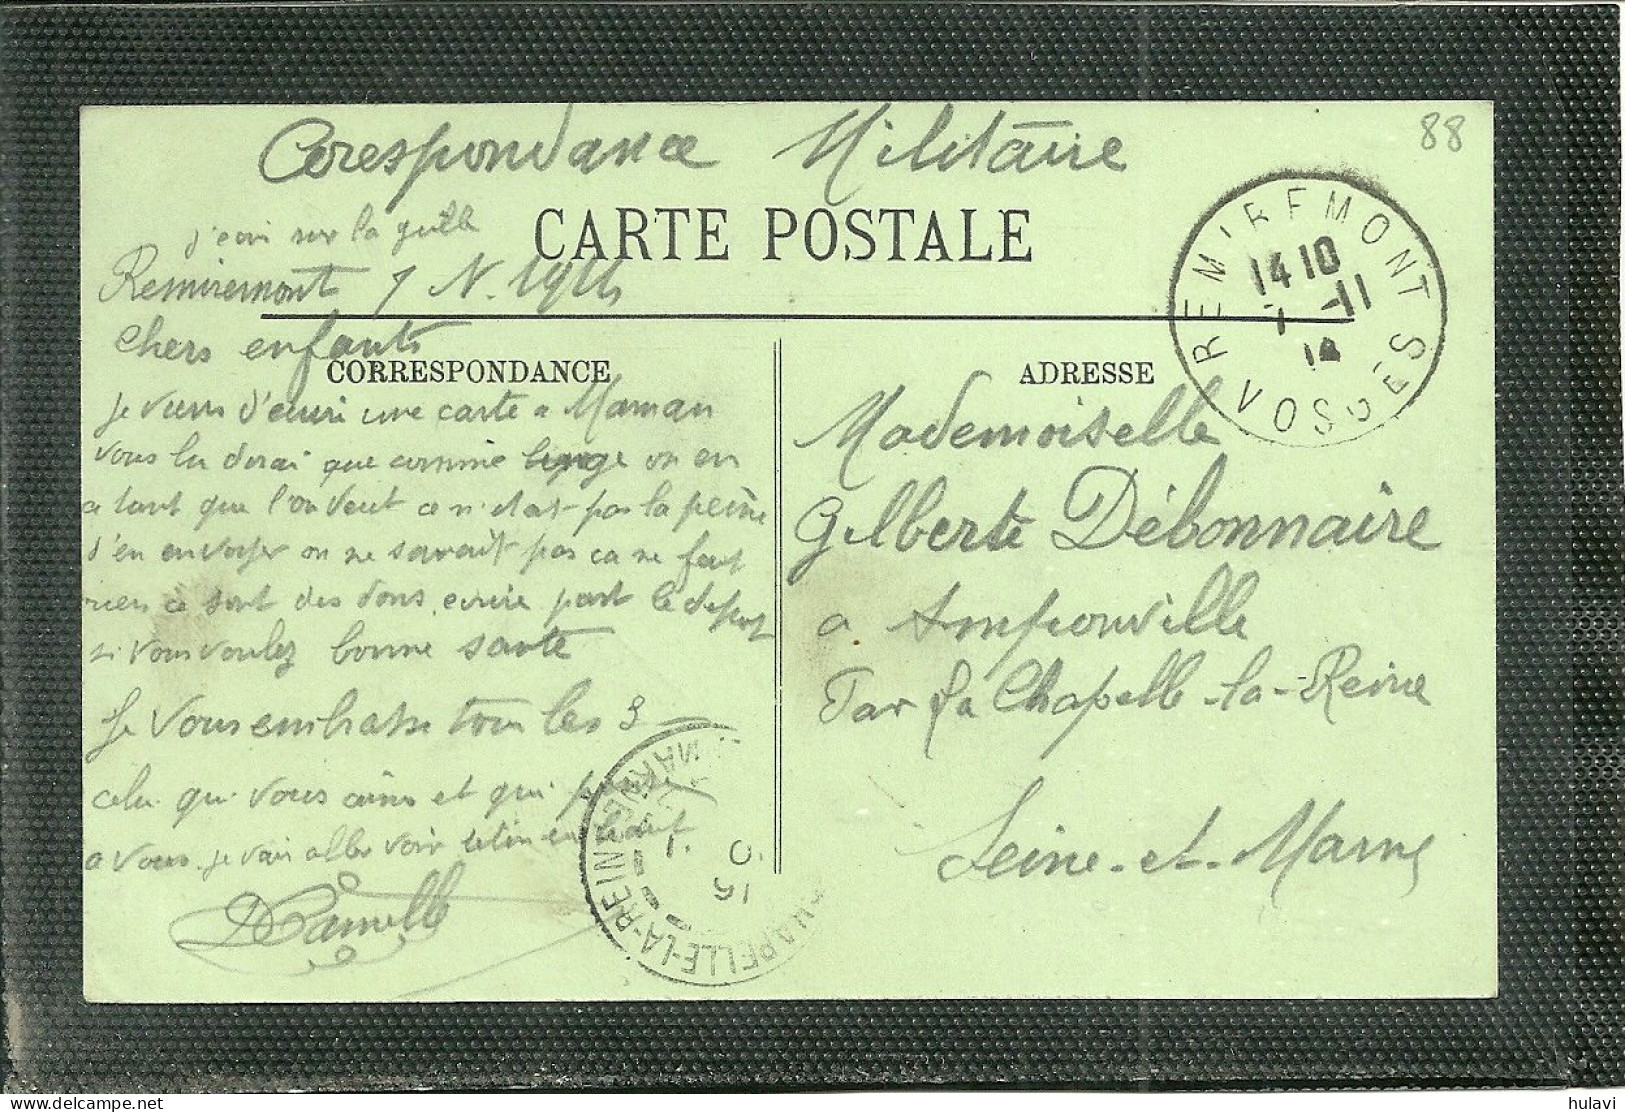 Corespondance Militaire
88
CARTE POSTALE
j'ecri sur la
Remiremont 7 N. 1914
REMIREMONT
14 10
7 -11
14
VOSGES
chers enfants
CORRESPONDANCE
Je viens d'ecrire une carte a Maman
vous lui dirai que comme linge on en
a tant que l'on veut ce n'etat pas la peine
d'en envoyer on ne savait pas ca ne fait
rien ce sont des dons ecrire part le depot
si vous voulez bonne sante
Je vous embrasse tous les 3
celui qui vous aime et qui pense
a vous je vais aller voir
Camille
ADRESSE
Mademoiselle
Gilberte Débonnaire
a Amponville
Par La Chapelle-la-Reine
Seine-et-Marne
CHAPELLE-LA-REINE
hulavi
delcampe.net